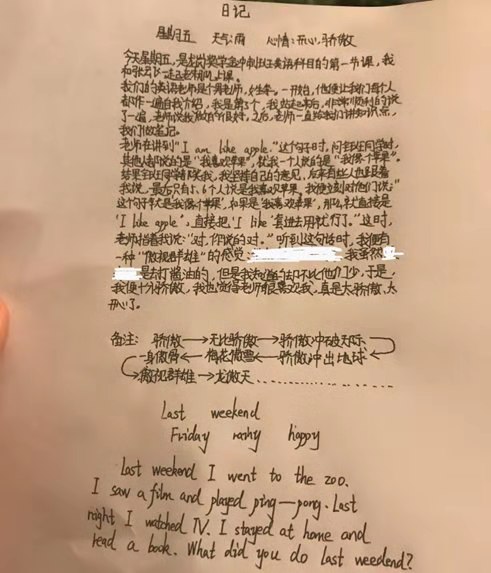 日记
星期五 天气:雨 心情:开心,骄傲
今天星期五,是 英语科目的第一节课,我
和张 一起去老师那上课。
我们的英语老师是个男老师,姓 。一开始,他便让我们每个人
都作一遍自我介绍,我是第3个,我站起来后,非常顺利的说
了一遍,老师说我 很好,之后,老师一直给我们讲知识点,
我们做笔记。
老师在讲到"I am like apple."这个句子时,问全班同学时,
其他人都说的是"我喜欢苹果",就我一个人说的是"我像个苹果"。
结果全班同学看 我,我坚持自己的意见,后来有些人也跟着
我说,最后只有5、6个人说是我喜欢苹果。我便立刻对他们说:"
这个句子就是我像个苹果,如果是'我喜欢苹果',那么就直接是
'I like apple',直接把'I like'套进去用就行了。"这时,
老师指着我说:"对,你说的对。"听到这句话时,我便有
一种"傲视群雄"的感觉; 我虽然
是去打酱油的,但是我知道的却不比他们少,于是,
我便十分骄傲,我也觉得老师很喜欢我,真是太骄傲、太
开心了。
备注: 骄傲→无比骄傲→骄傲冲破天际
一身傲骨←梅花傲雪←骄傲冲出地球
傲视群雄→龙傲天............
Last weekend
Friday rainy happy
Last weekend I went to the zoo.
I saw a film and played ping—pong. Last
night I watched TV. I stayed at home and
read a book. What did you do last weedend?